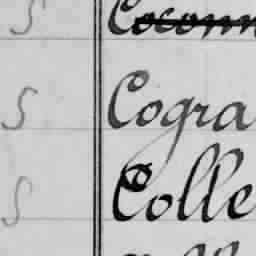 S Coconn
S Cogra
S Colle